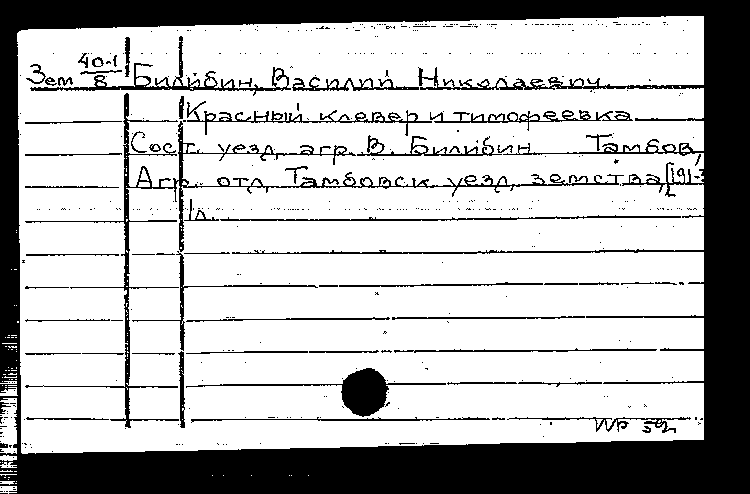 Зем 40-1/8 Билибин, Василий Николаевич
Красный клевер и тимофеевка.
Сост. уезд. агр. В. Билибин Тамбов,
Агр. отд. Тамбовск. уезд. земства, [191-
1л.